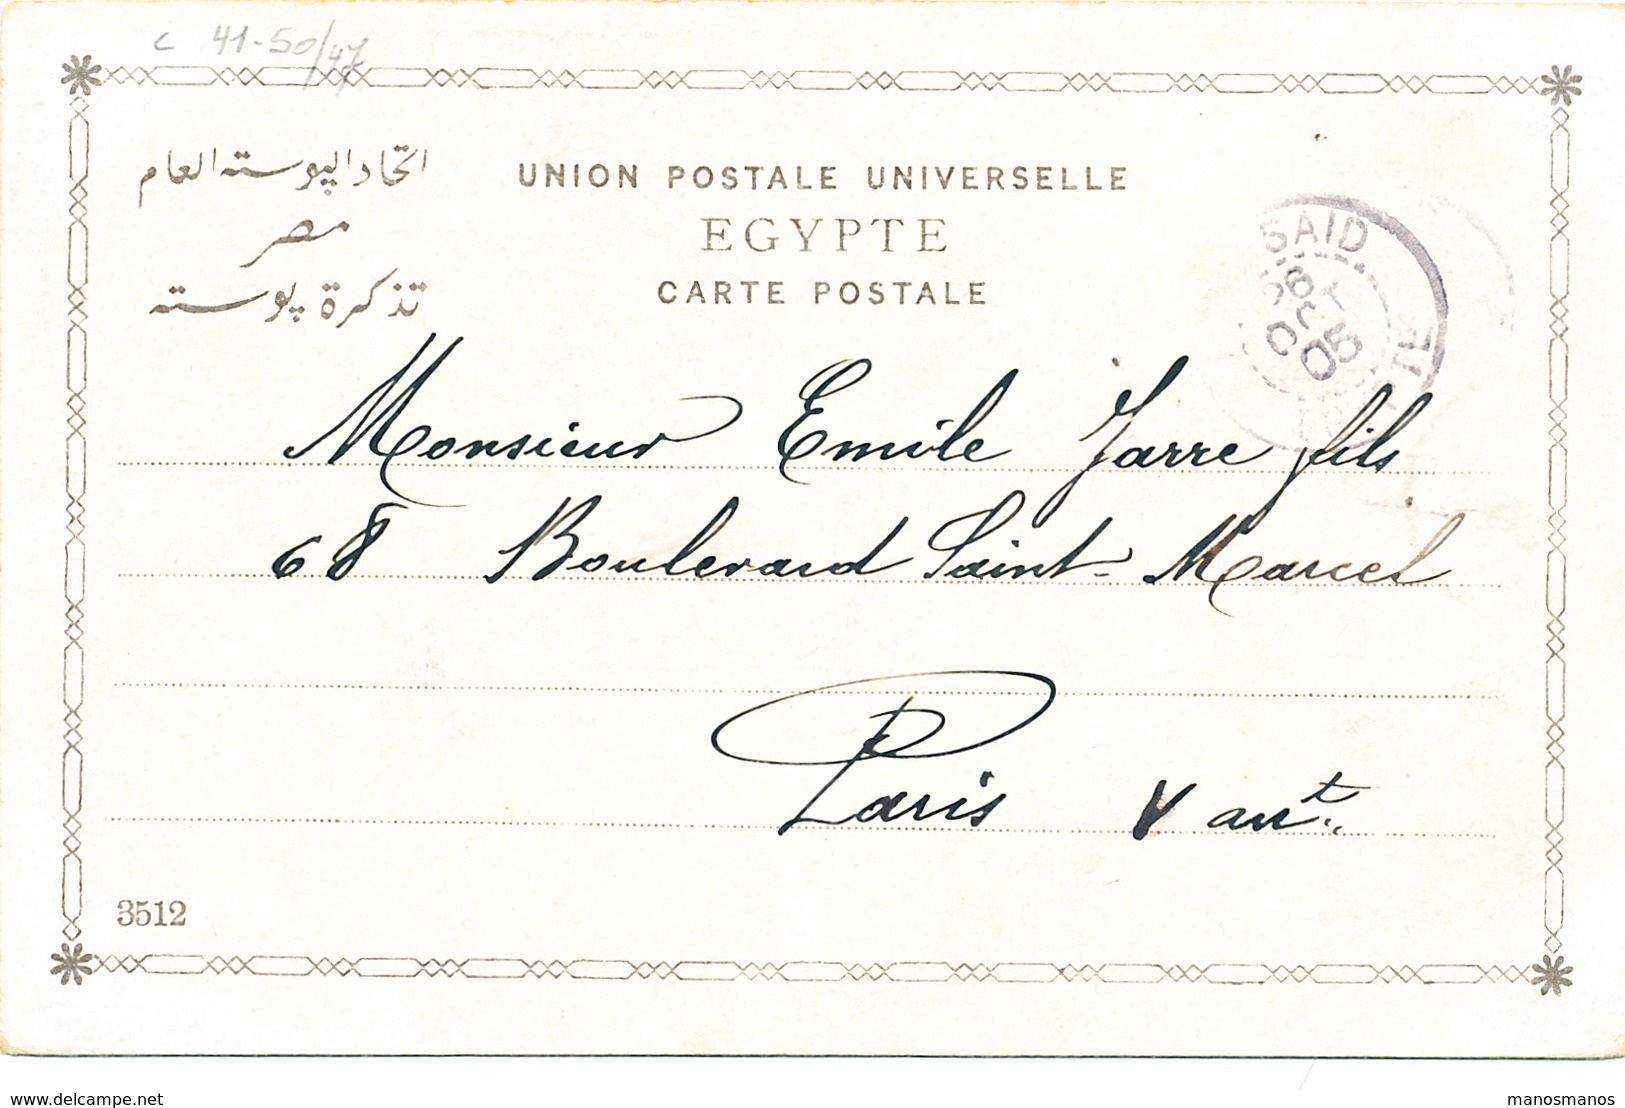 c 41-50/47
اتحاد البوسته العام
مصر
تذكرة پوسته
UNION POSTALE UNIVERSELLE
EGYPTE
CARTE POSTALE
SAID
Monsieur Emile Jarre fils
68 Boulevard Saint-Marcel
Paris
3512
www.delcampe.net
manosmanos